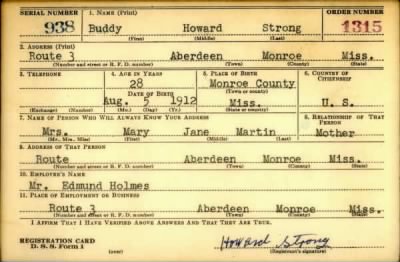 SERIAL NUMBER 1. NAME (Print) ORDER NUMBER
938 Buddy Howard Strong 1315
(First) (Middle) (Last)
2. ADDRESS (Print)
Route 3 Aberdeen Monroe Miss.
(Number and street or R. F. D. number) (Town) (County) (State)
3. TELEPHONE 4. AGE IN YEARS 5. PLACE OF BIRTH 6. COUNTRY OF CITIZENSHIP
28 Monroe County
DATE OF BIRTH (Town or county)
Aug. 5 1912 Miss. U. S.
(Exchange) (Number) (Mo.) (Day) (Yr.) (State or country)
7. NAME OF PERSON WHO WILL ALWAYS KNOW YOUR ADDRESS 8. RELATIONSHIP OF THAT PERSON
Mrs. Mary Jane Martin Mother
(Mr., Mrs., Miss) (First) (Middle) (Last)
9. ADDRESS OF THAT PERSON
Route Aberdeen Monroe Miss.
(Number and street or R. F. D. number) (Town) (County) (State)
10. EMPLOYER'S NAME
Mr. Edmund Holmes
11. PLACE OF EMPLOYMENT OR BUSINESS
Route 3 Aberdeen Monroe Miss.
(Number and street or R. F. D. number) (Town) (County) (State)
I AFFIRM THAT I HAVE VERIFIED ABOVE ANSWERS AND THAT THEY ARE TRUE.
REGISTRATION CARD Howard Strong
D. S. S. Form 1 (over) (Registrant's signature)